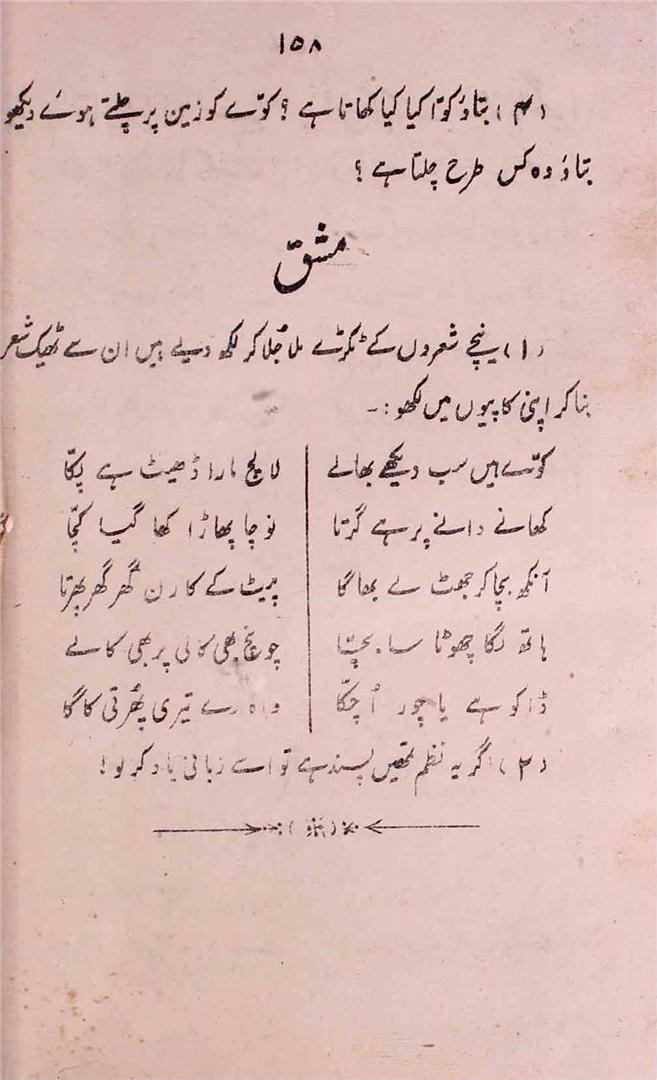 ۱۵۸
(۴) بتاؤ کوّا کیا کیا کھاتا ہے؟ کوّے کو زمین پر چلتے ہوئے دیکھو
بتاؤ وہ کس طرح چلتا ہے؟
مشق
(۱) نیچے شعروں کے ٹکڑے ملا جُلا کر لکھ دیے ہیں ان سے ٹھیک شعر
بنا کر اپنی کاپیوں میں لکھو:۔
کوّے ہیں سب دیکھے بھالے | لالچ مارا ڈھیٹ ہے پکّا
کھانے دانے پر ہے گرتا | نوچا پھاڑا کھا گیا کچّا
آنکھ بچا کر جھٹ لے بھاگا | پیٹ کے کارن گھر گھر پھرتا
ہاتھ لگا چھوٹا سا بچّا | چونچ بھی کالی پر بھی کالے
ڈاکو ہے یا چور اُچکّا | واہ رے تیری پھُرتی کاگا
(۲) اگر یہ نظم تمھیں پسند ہے تو اسے زبانی یاد کر لو!